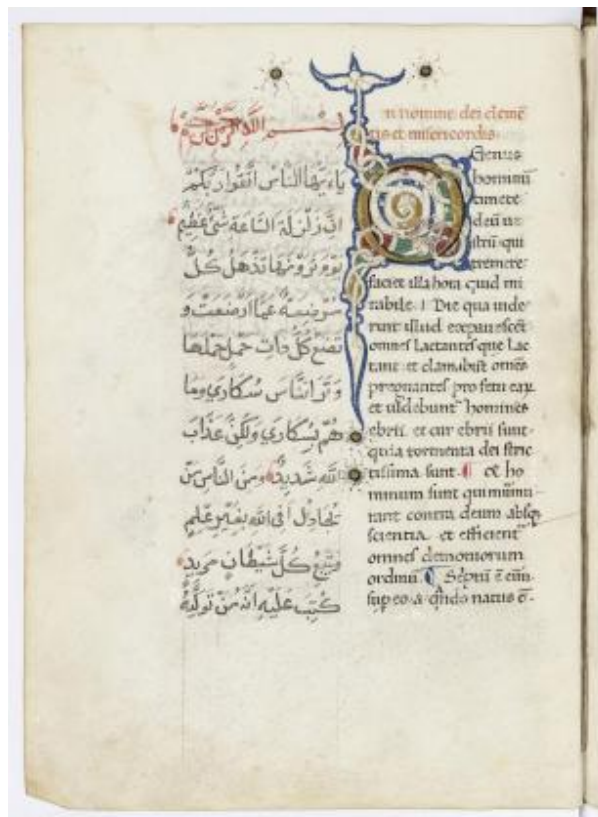 بسم الله الرحمن الرحيم
ياءيها الناس اتقوا ربكم
ان زلزلة الساعة شئ عظيم
يوم ترونها تذهل كل
مرضعة عما ارضعت و
تضع كل ذات حمل حملها
و ترا الناس سكارى وما
هم بسكارى ولكن عذاب
الله شديد ومن الناس من
يجادل في الله بغير علم
ويتبع كل شيطان مريد
كتب عليه انه من توليه
n nomine dei clemē
tis et misericordis
Genus
hominū
timete
deū ue
strū qui
tremere
faciet illa hora quid mi
rabile Die qua uide
runt illud expauescēt
omnes lactantes que lac
tant et clamabūt omēs
pregnantes pro fetu eaꝝ
et uidebunt homines
ebrii et cur ebrii sunt
quia tormenta dei stric
tissima sunt ¶ de ho
minum sunt qui
rant contra deum absꝗ
scientia et efficient
omnes demoniorum
ordinū ¶ ē eīm
sup eo natus ē